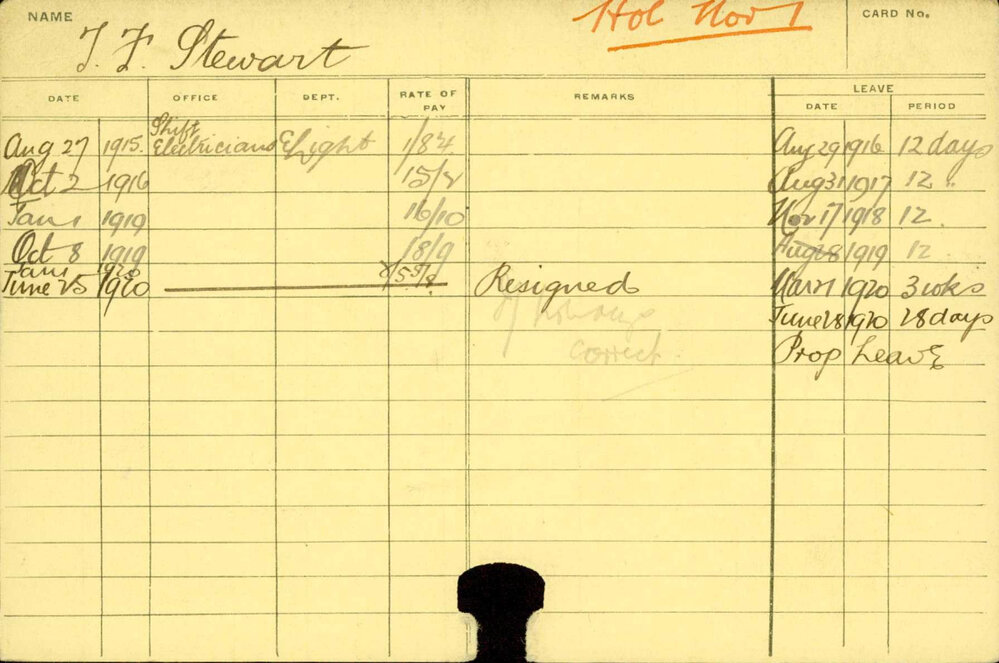 NAME
T. F. Stewart
Hol Nov 1
CARD No.
DATE OFFICE DEPT. RATE OF PAY REMARKS LEAVE
DATE PERIOD
Aug 27 1915. Shift Electricians E Light 1/8¼. Aug 29 1916 12 days
Oct 2 1916 15/2 Aug 31 1917 12 "
Jan 1 1919 16/10 Nov 17 1918 12
Oct 8 1919 18/9 Aug 28 1919 12
Jan 1 1920
June 25 1920 Resigned Mar 1 1920 3 wks
June 28 1920 28 days
correct. Prop Leave